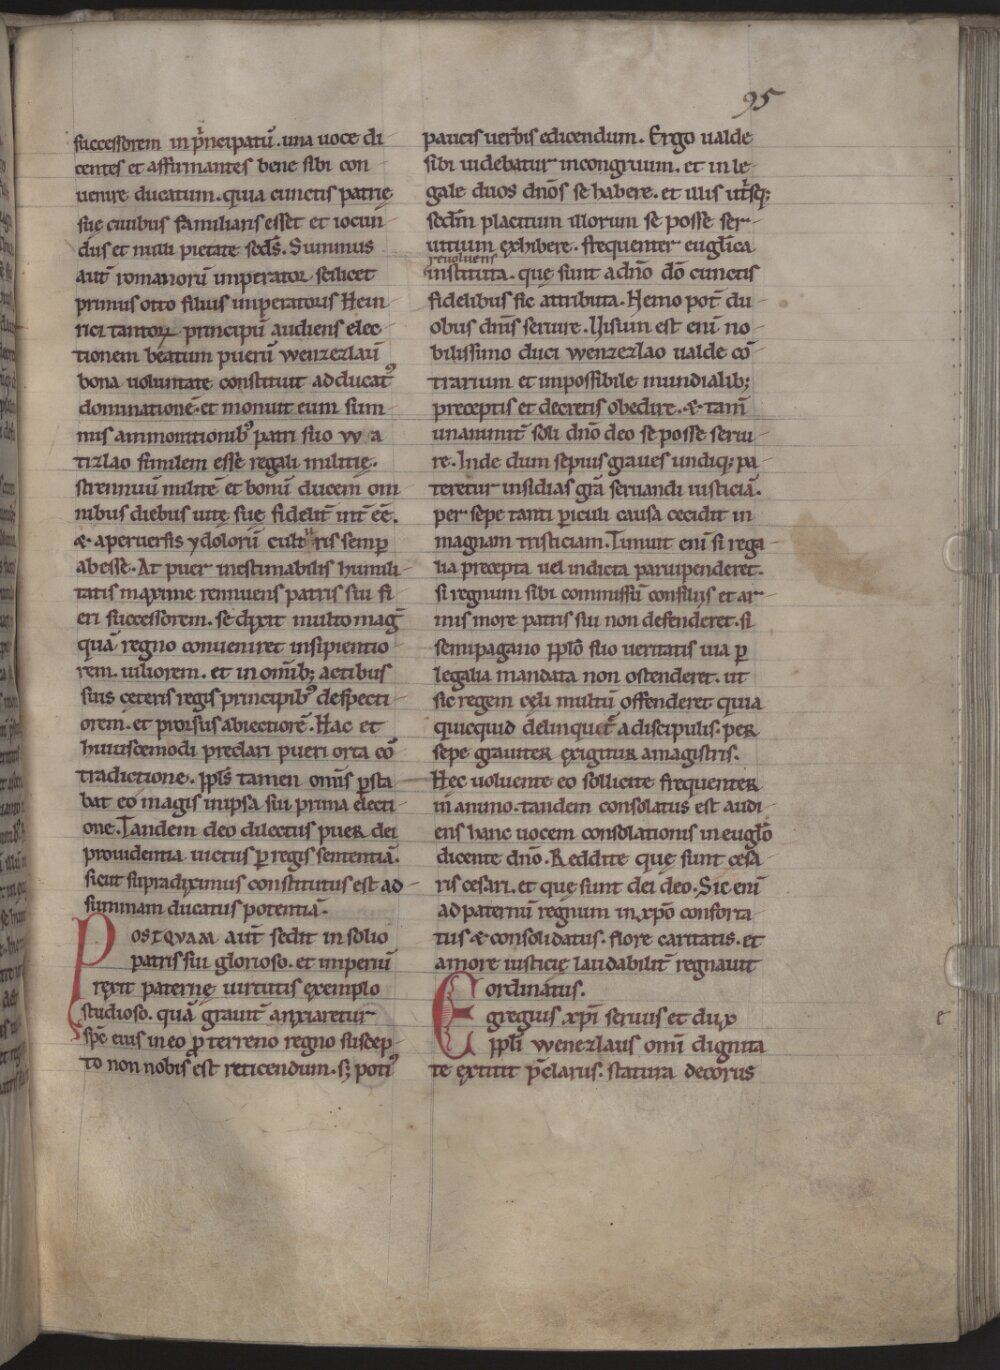 95
successorem in p̾ncipatū. una uoce di-
centes et affirmantes bene sibi con-
uenire ducatum. quia cunctis patrię
suę ciuibus familiaris esset et iocun-
dus et nulli pietate scds̄. Summus
autē romanorū imperator scilicet
primus otto filius imperatoris Hein-
rici tantoꝝ principū audiens elec-
tionem beatum puerū wenzezlaū
bona uoluntate constituit ad ducatꝰ
dominationē. et monuit eum sum-
mis ammonitionibꝰ patri suo wa-
tizlao similem esse regali militię.
strennuū militē et bonū ducem om-
nibus diebus uitę suę fidelit̄ int̄ eē.
& a peruersis ydolorū culturis semp̄
abesse. At puer inestimabilis humili-
tatis maxime rennuens patris sui fi-
eri successorem. se dixit multo maḡ
quā regno conueniret insipientio-
rem. uiliorem. et in om̄ib; actibus
suis ceteris regis principibꝰ despecti-
orem. et prorsus abiectiorē. Hac et
huiuscemodi preclari pueri orta cō-
tradictione. ppl̄s tamen om̄is p̱sta-
bat eo magis in ipsa sui prima electi-
one. Tandem deo dilectus puer dei
prouidentia uictus p̱ regis sententiā.
sicut supradiximus constitutus est ad
summam ducatus potentiā.
Postqvam aut̄ sedit in solio
patris sui glorioso. et imperiū
rexit paternę uirtutis exemplo
studioso. quā grauit̄ anxiaretur
spē eius in eo p̱ terreno regno suscep-
to non nobis est reticendum. s; potiꝰ
paucis uerbis edicendum. Ergo ualde
sibi uidebatur incongruum. et in le-
gale duos dn̄os se habere. et illis ut̾sq;
scdm̄ placitum illorum se posse ser-
uitium exhibere. frequenter euglīca
reuoluens
instituta. quę sunt a dn̄o dō cunctis
fidelibus sic attributa. Nemo pot̄ du-
obus dn̄is seruire. Uisum est enī no-
bilissimo duci wenzezlao ualde cō-
trarium et impossibile mundialib;
preceptis et decretis obedire. & tam̄
unanimit̄ soli dn̄o deo se posse serui-
re. Inde dum sepius graues undiq; pa-
teretur insidias grā seruandi iusticiā.
per sepe tanti p̱iculi causa cecidit in
magnam tristiciam. Timuit enī si rega-
lia precepta uel indicta paruipenderet.
si regnum sibi commissū consiliis et ar-
mis more patris sui non defenderet. si
semipagano pplō suo ueritatis uia p̱
legalia mandata non ostenderet. ut
sic regem cęli multū offenderet quia
quicquid delinquet̄ a discipulis. per
sepe grauiter exigitur a magistris.
Hec uoluente eo sollicite frequenter
in animo. tandem consolatus est audi-
ens hanc uocem consolationis in euglō
dicente dn̄o. Reddite quę sunt cesa-
ris cesari. et quę sunt dei deo. Sic enī
ad paternū regnum in xp̄o conforta-
tus & consolidatus. flore caritatis. et
amore iusticię laudabilit̄ regnauit
ordinatus.
Egregius xp̄i seruus et dux
ppl̄i wenezlaus omī dignita-
te extitit p̄clarus. statura decorus
e